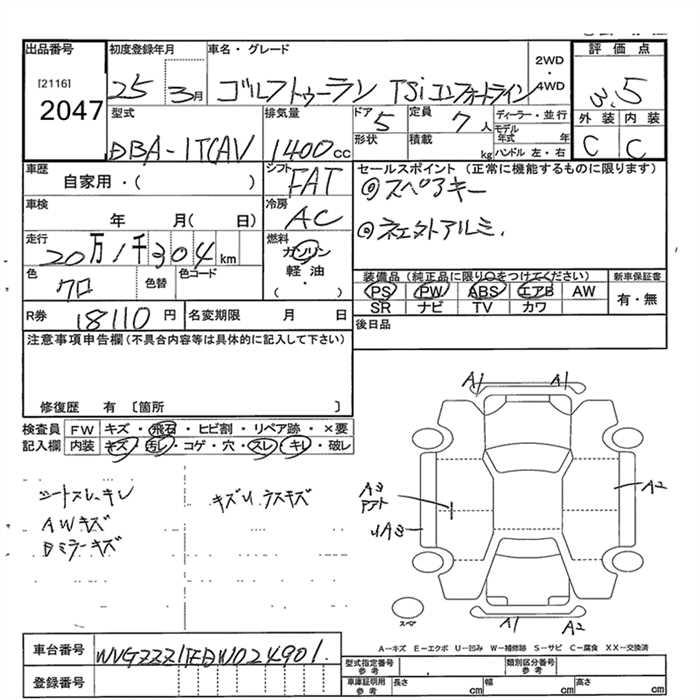 出品番号 初度登録年月 車名・グレード 2WD・4WD 評価点
[2116]
2047
25 3月 ゴルフトゥーラン TSiコンフォートライン 3.5
型式 排気量 ドア 定員 ディーラー・並行 外装 内装
DBA-1TCAV 1400cc 5 7人 モデル年式 年 C C
形状 積載 kg ハンドル 左・右
車歴 シフト セールスポイント(正常に機能するものに限ります)
自家用・( ) FAT ◎スペアキー
車検 冷房
年 月( 日) AC
走行 燃料
20万1千304km ガソリン
軽油
・( )
色 色替 色コード
クロ
装備品(純正品に限り○をつけてください) 新車保証書
PS PW ABS エアB AW 有・無
SR ナビ TV カワ
R券 18110円 名変期限 月 日 後日品
注意事項申告欄(不具合内容等は具体的に記入して下さい)
修復歴 有 〔箇所 〕
検査員 FW キズ・飛石・ヒビ割・リペア跡・×要
記入欄 内装 キズ・汚レ・コゲ・穴・スレ・キレ・破レ
シートスレ・キレ
AWキズ
Bミラーキズ
A1 A1
A3
A2
A1 A2
スペア
A-キズ E-エクボ U-凹み W-補修跡 S-サビ C-腐食 XX-交換済
車台番号 WVGZZZ1TZDW024901
登録番号
型式指定番号 参考 類別区分番号 参考
車庫証明用 参考 長さ cm 幅 cm 高さ cm